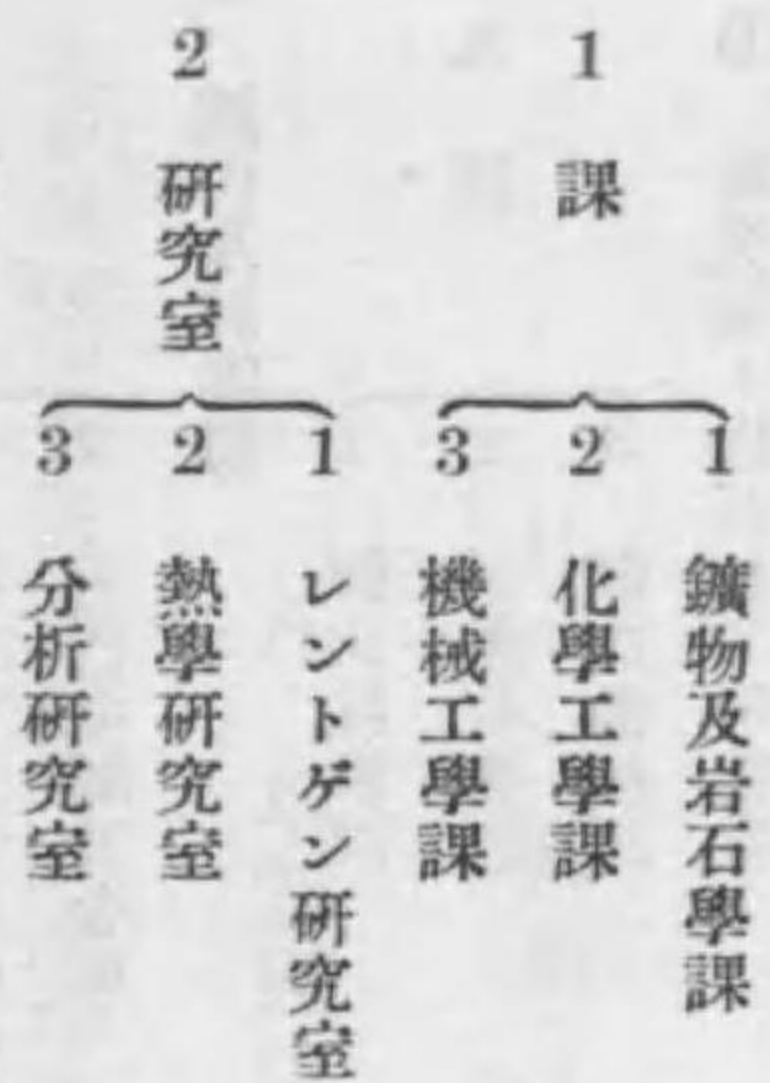 1 課
1 鑛物及岩石學課
2 化學工學課
3 機械工學課
2 硏究室
1 レントゲン硏究室
2 熱學硏究室
3 分析硏究室